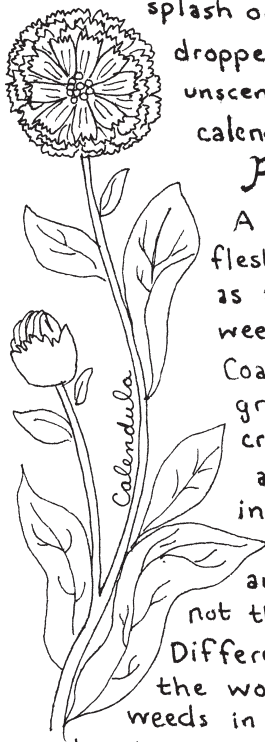 splash o
droppe
unscen
calen
A
flesh
as
wee
Coa
gr
cr
a
in
au
not th
Differ
the wo
weeds in
Calendula